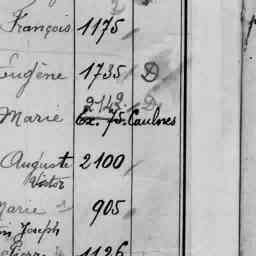 François 1175
Eugène 1735 D
2142 D
Marie Ex. 75. Caulnes
Auguste 2100
Victor
Marie 905
Joseph
Pierre 1126